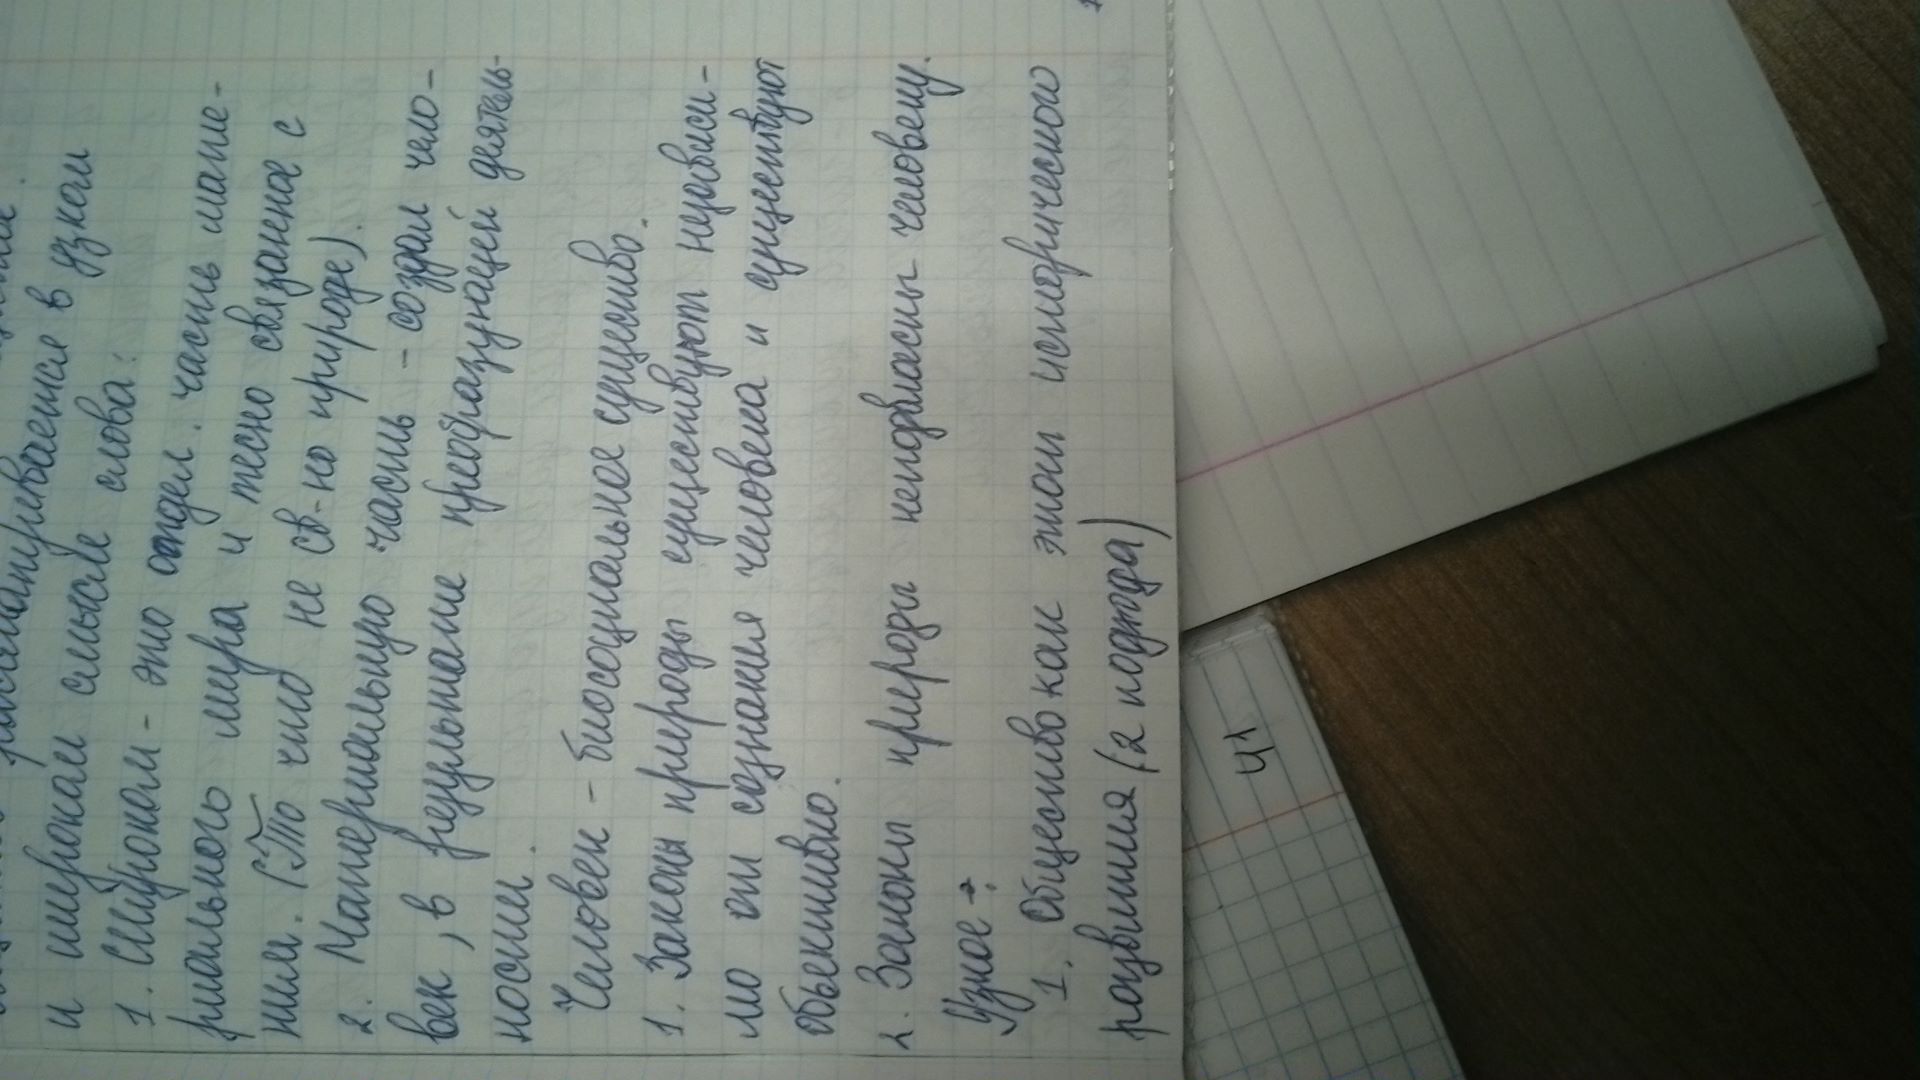 рассматривается в узком
и широком смысле слова:
1. Широком - это отдел. часть мате-
риального мира и тесно связанное с
ним. (То что не св-но природе).
2. Материальную часть - создал чело-
век, в результате преобразующей деятель-
ности.
Человек - биосоциальное существо.
1. Законы природы существуют независи-
мо от сознания человека и существуют
объективно.
2. Законы природы неподвластны человеку.
Узкое →:
1. Общество как этап исторического
развития (2 подхода)
41